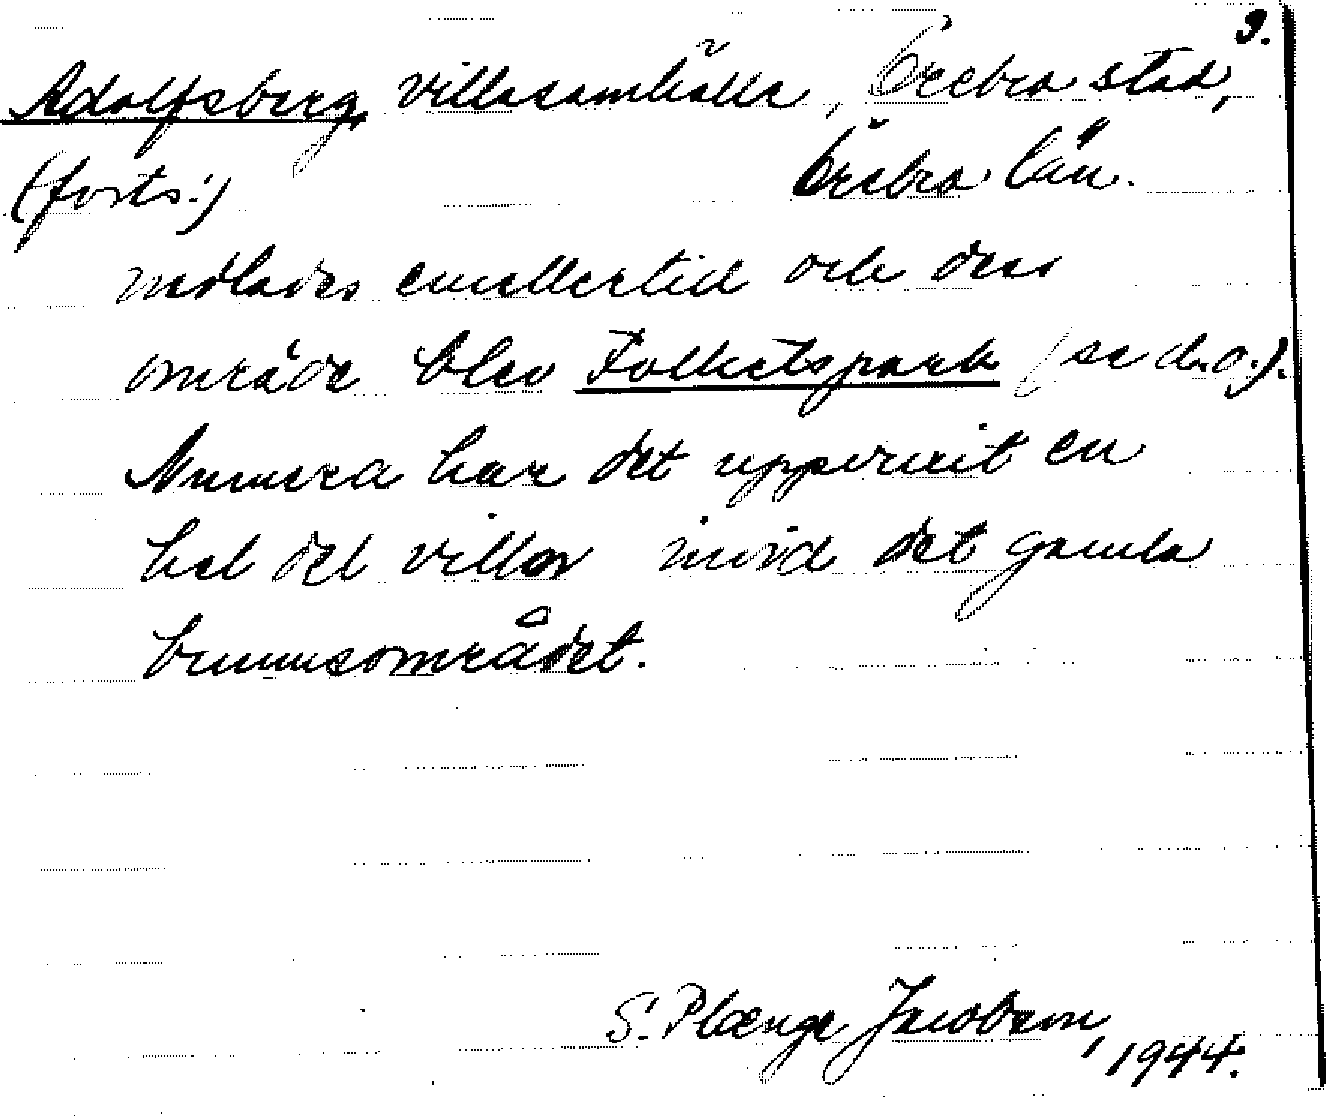 3.
Adolfsberg, villasamhälle, Örebro stad,
(forts.) Örebro län.
nedlades emellertid och dess
område blev Folketspark (se d.o.).
Numera har det uppvuxit en
hel del villor invid det gamla
brunnsområdet.
S. Plænge Jacobson, 1944.